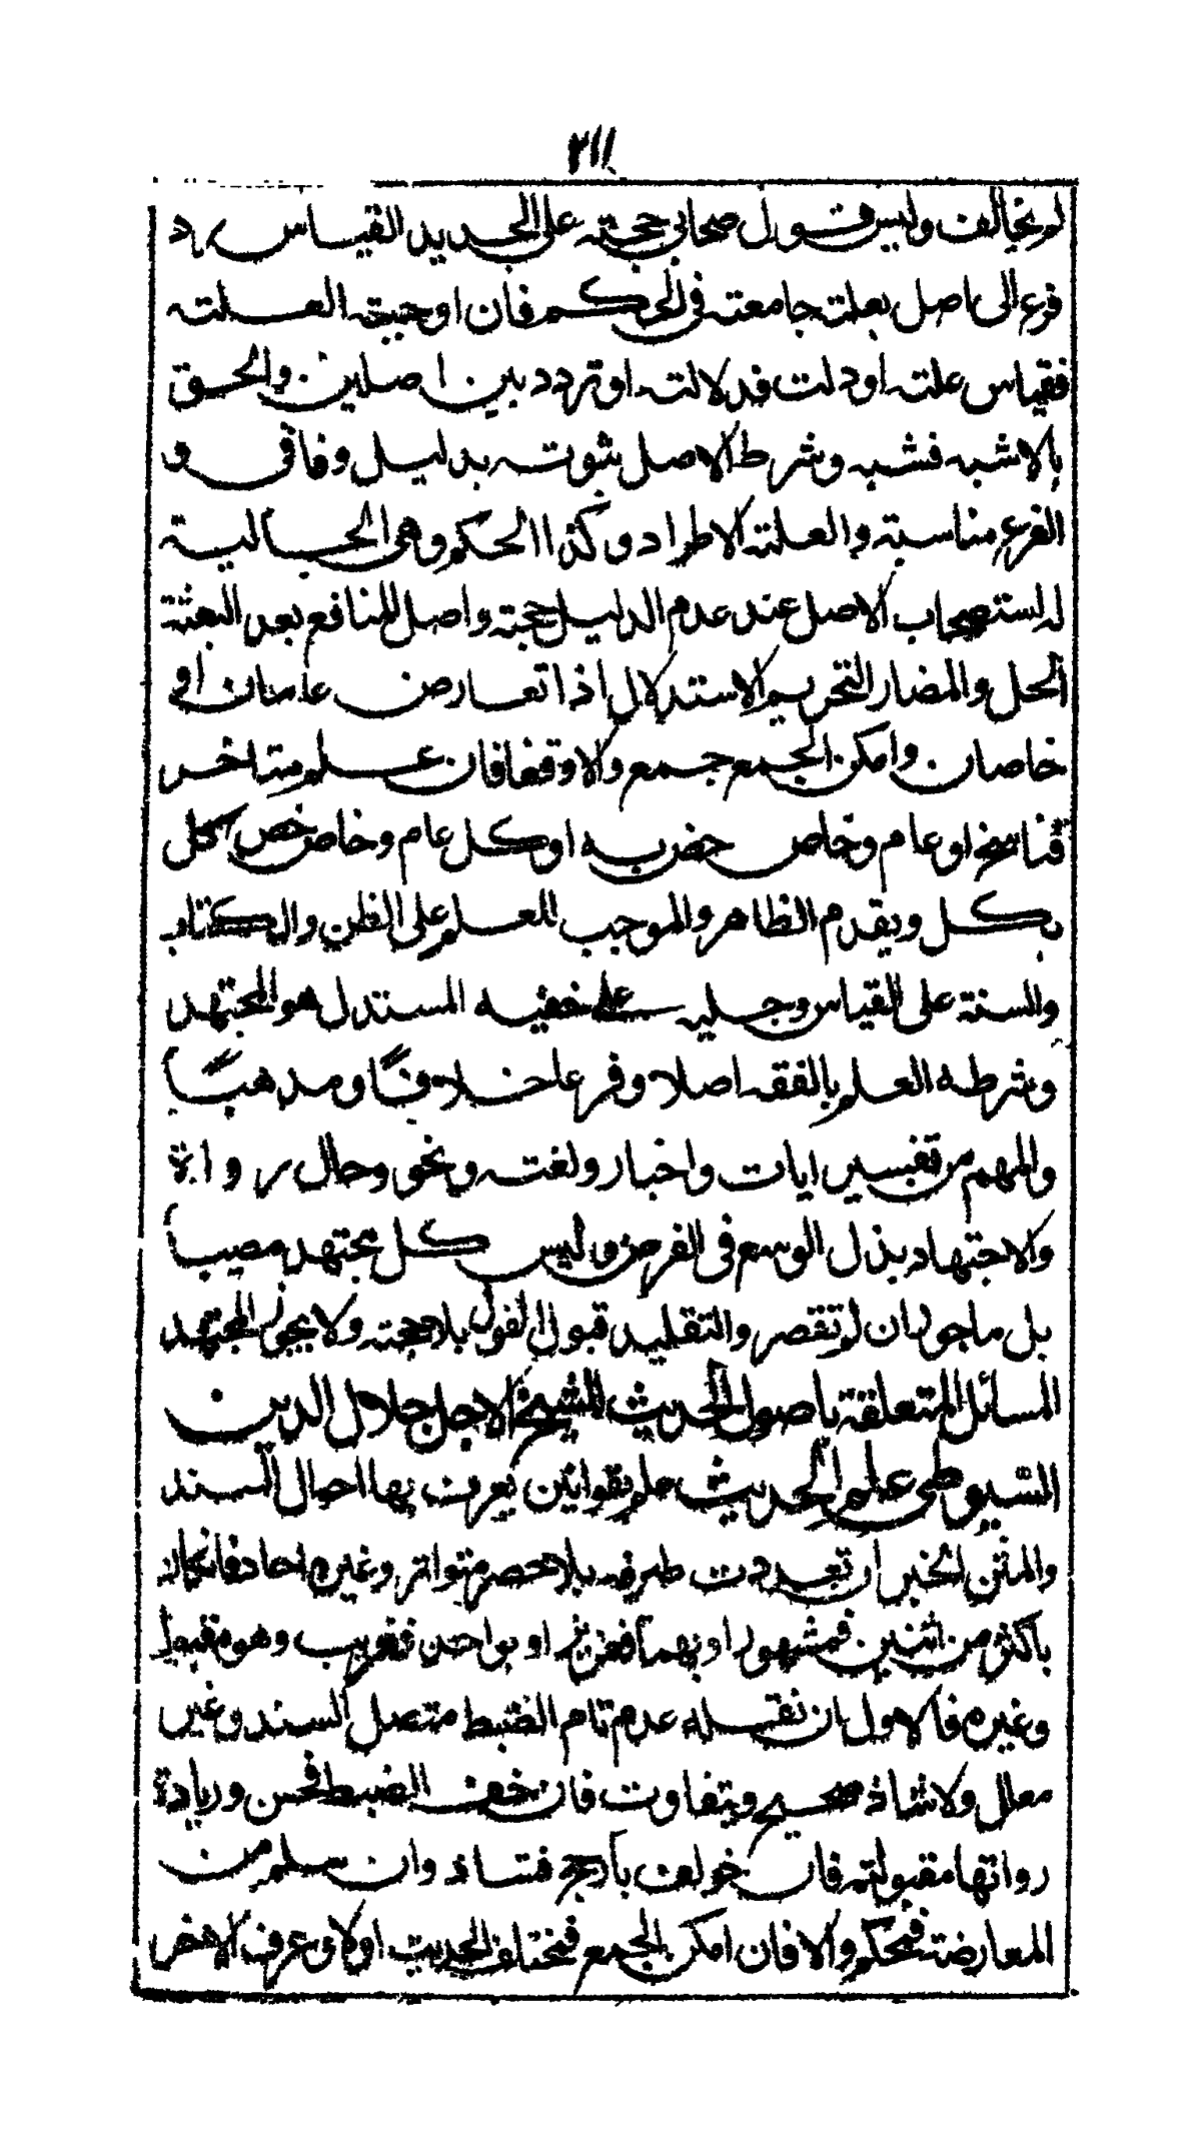 ٢١١
لم يخالف وليس قول صحابي حجته على الجديد القياس رد
فرع الى اصل بعلته جامعته في الحكم فان اوجبته العلته
فقياس علته اودلت فدلالته اوتردد بين اصلين والحق
بالاشبه فشبه وشرط الاصل ثبوته بدليل وفاقي و
الفرع مناسبته والعلته الاطراد وكذا الحكم وهي الجالبة
له استصحاب الاصل عند عدم الدليل حجته واصل المنافع بعد البعثة
الحل والمضار التحريم الاستدلال اذا تعارض عامان او
خاصان وامكن الجمع جمع والا وقفا فان علم متاخر
فناسخ او عام وخاص خص به او كل عام وخاص خص كل
بكل ويقدم الظاهر والموجب للعلم على الظن والكتاب
والسنة على القياس وجليه على خفيه المستدل هو المجتهد
وشرطه العلم بالفقه اصلا وفرعا خلافًا ومذهبًا
والمهم من تفسير ايات واخبار ولغته ونحو وحال رواة
والاجتهاد بذل الوسع في الغرض وليس كل مجتهد مصيبا
بل ماجور ان لم تقصر والتقليد قبول القول بلا حجته ولا يجوز لمجتهد
المسائل المتعلقة باصول الحديث للشيخ الاجل جلال الدين
السيوطي علم الحديث علم بقوانين يعرف بها احوال السند
والمتن الخبر ان تعددت طرقه بلا حصر متواتر وغيره احاد فان كان
باكثر من اثنين فمشهور او بهما فعزيز او بواحد فغريب وهو مقبول
وغيره فالاول ان نقله عدم تام الضبط متصل السند وغير
معلل ولا شاذ صحيح ويتفاوت فان خف الضبط فحسن وزيادة
رواتها مقبولته فان خولف بارجح فشاذ وان سلم من
المعارضته فمحكم والا فان امكن الجمع فمختلف الحديث اولا وعرف الاخر